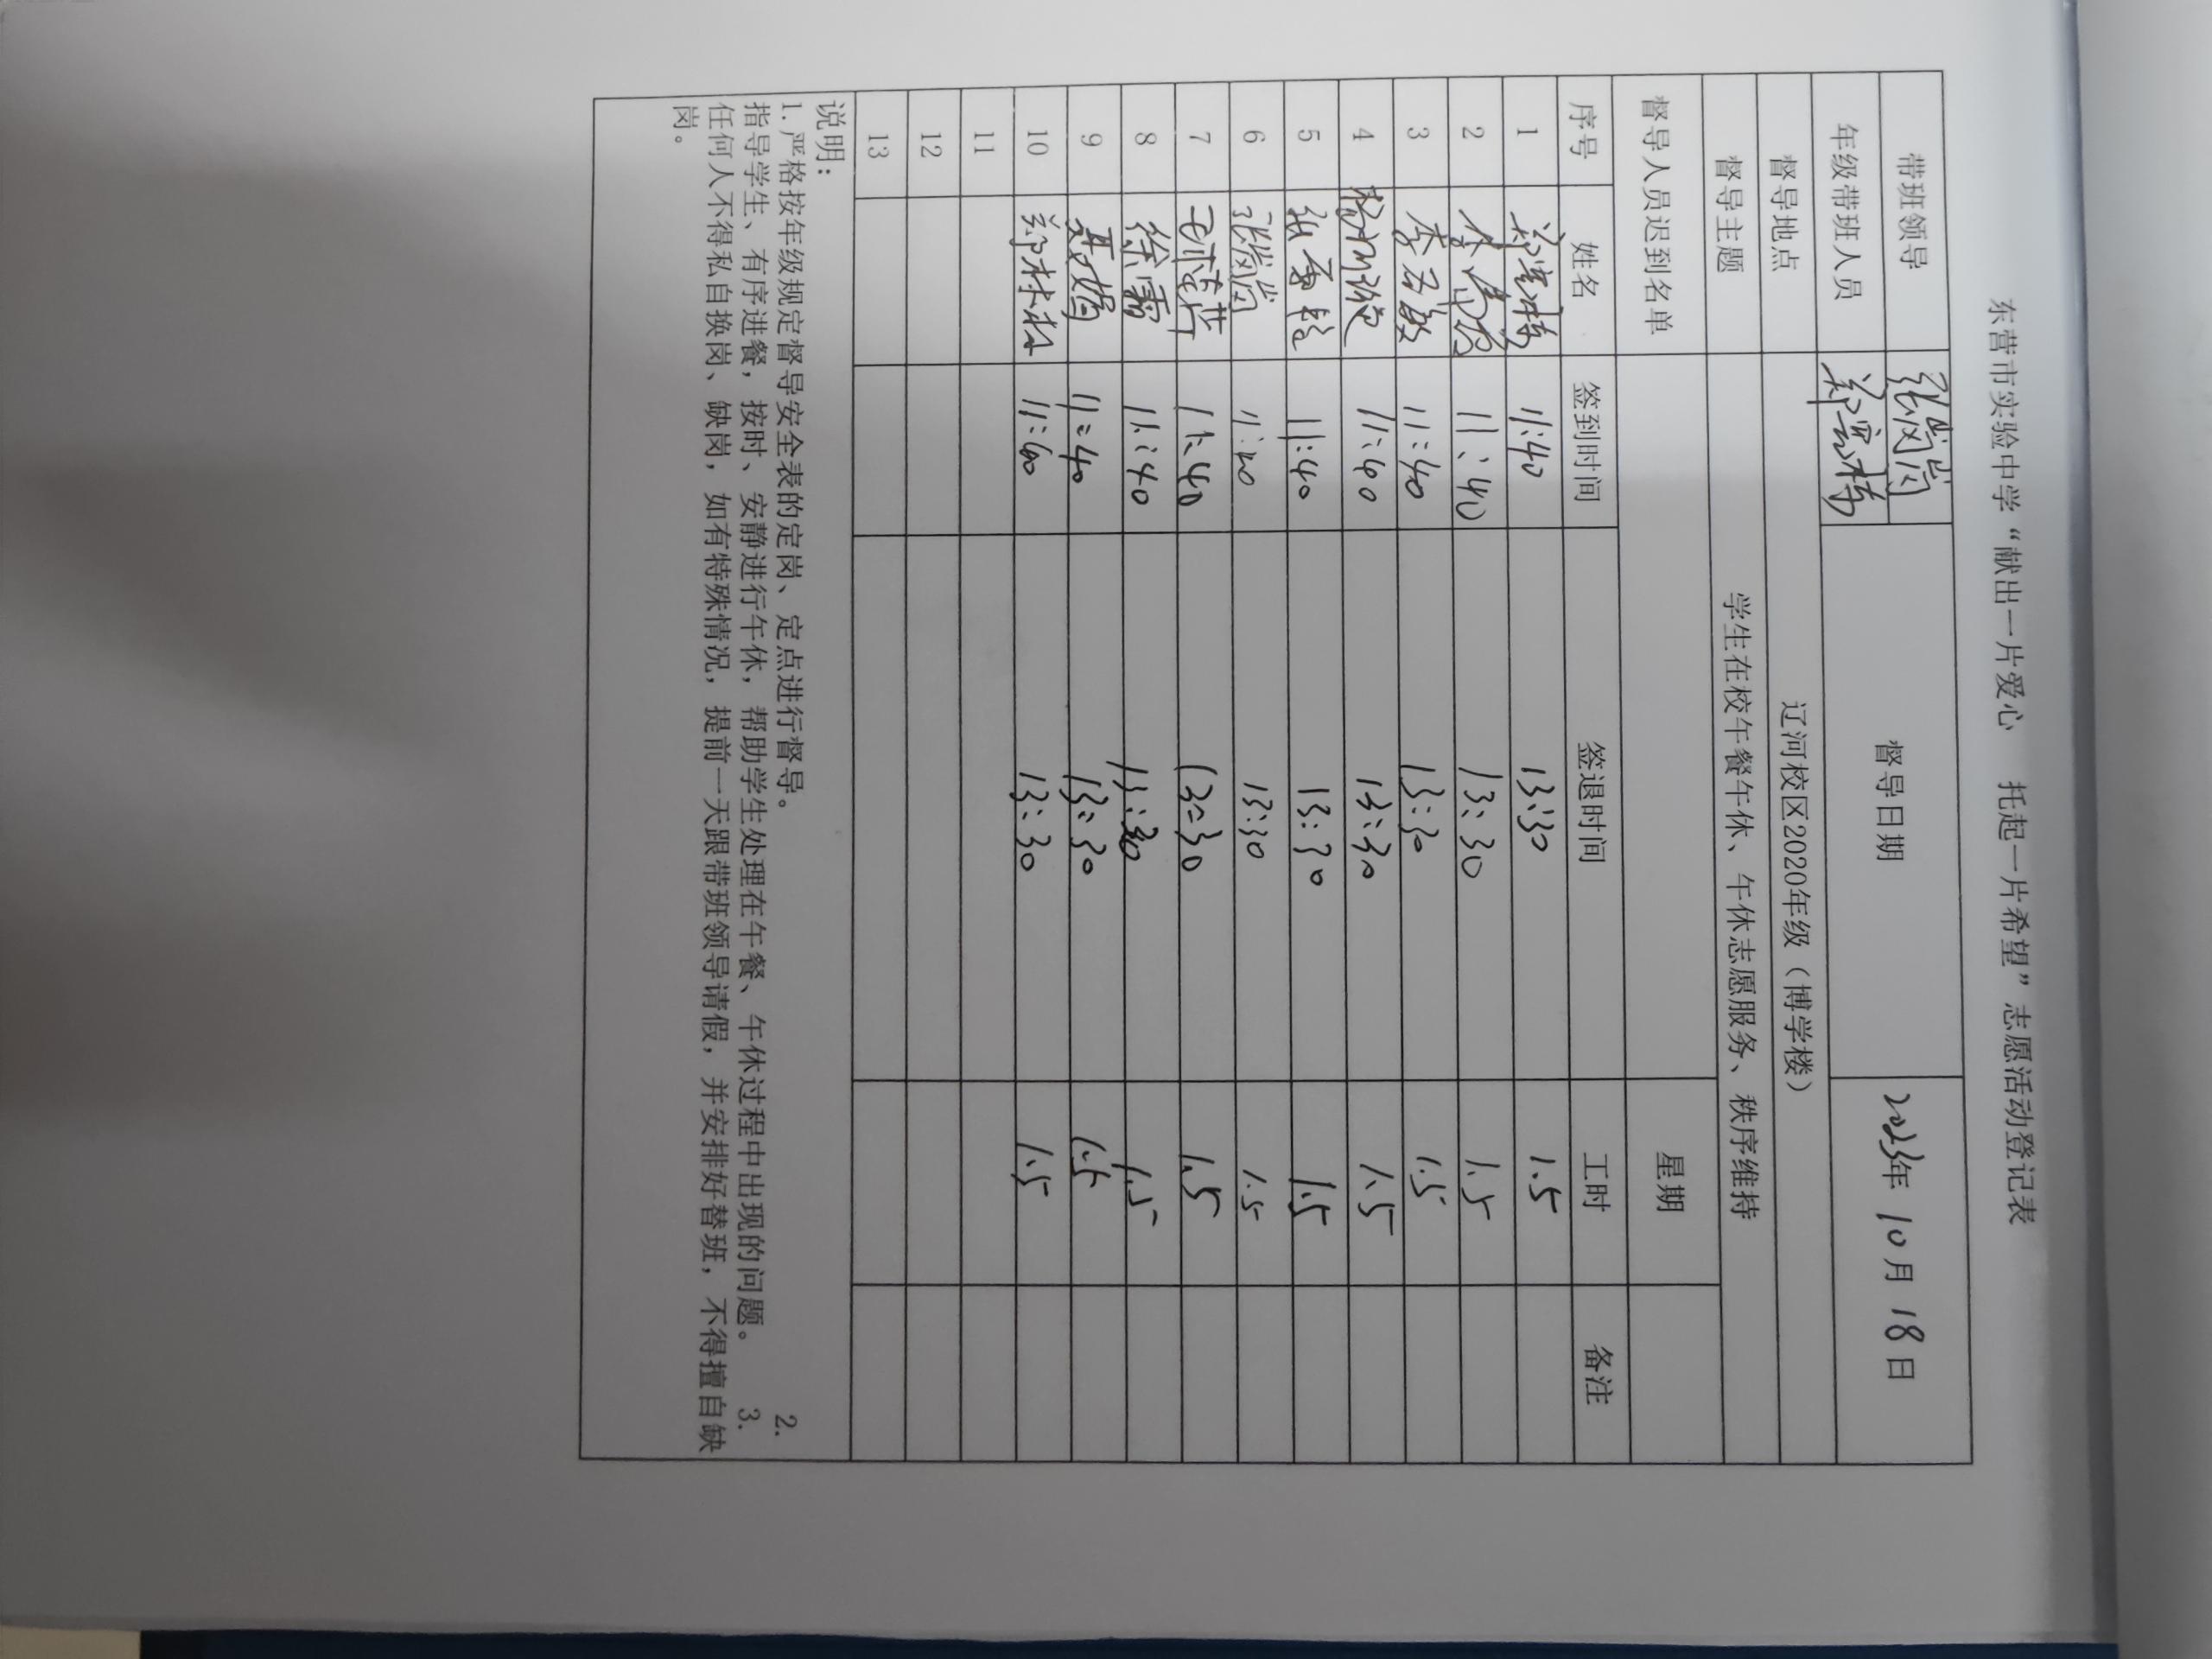 东营市实验中学“献出一片爱心 托起一片希望”志愿活动登记表
带班领导 督导日期 2023年 10月 18日
年级带班人员
督导地点 辽河校区2020年级（博学楼）
督导主题 学生在校午餐午休、午休志愿服务、秩序维持
督导人员迟到名单 星期
序号 姓名 签到时间 签退时间 工时 备注
1 11:40 13:30 1.5
2 11:40 13:30 1.5
3 11:40 13:30 1.5
4 11:40 13:30 1.5
5 11:40 13:30 1.5
6 11:40 13:30 1.5
7 11:40 13:30 1.5
8 徐霜 11:40 13:30 1.5
9 聂娟 11:40 13:30 1.5
10 11:40 13:30 1.5
11
12
13
说明：
1.严格按年级规定督导安全表的定岗、定点进行督导。 2.
指导学生、有序进餐，按时、安静进行午休，帮助学生处理在午餐、午休过程中出现的问题。 3.
任何人不得私自换岗、缺岗，如有特殊情况，提前一天跟带班领导请假，并安排好替班，不得擅自缺
岗。